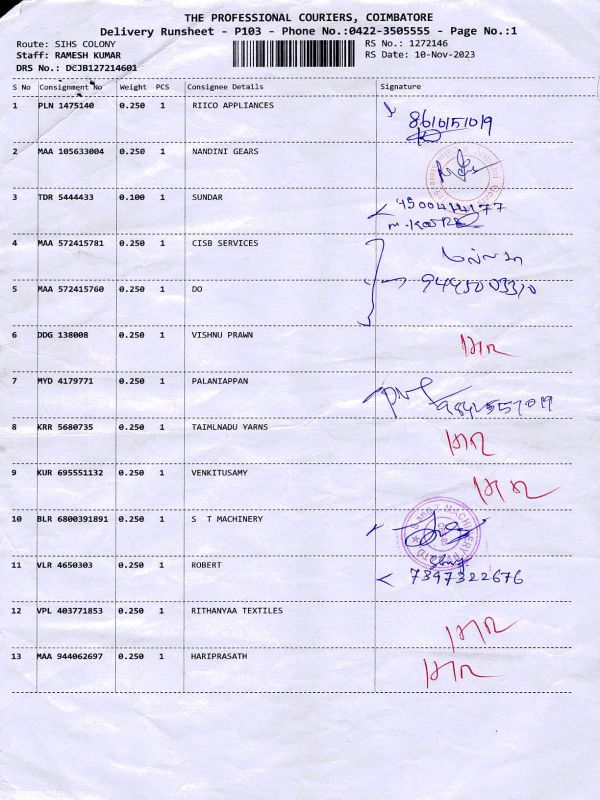 THE PROFESSIONAL COURIERS, COIMBATORE
Delivery Runsheet - P103 - Phone No.:0422-3505555 - Page No.:1
Route: SIHS COLONY RS No.: 1272146
Staff: RAMESH KUMAR RS Date: 10-Nov-2023
DRS No.: DCJB127214601
S No Consignment No Weight PCS Consignee Details Signature
1 PLN 1475140 0.250 1 RIICO APPLIANCES
8610151019
2 MAA 105633004 0.250 1 NANDINI GEARS
3 TDR 5444433 0.100 1 SUNDAR
4 MAA 572415781 0.250 1 CISB SERVICES
5 MAA 572415760 0.250 1 DO
6 DDG 138008 0.250 1 VISHNU PRAWN
7 MYD 4179771 0.250 1 PALANIAPPAN
8 KRR 5680735 0.250 1 TAIMLNADU YARNS
9 KUR 695551132 0.250 1 VENKITUSAMY
10 BLR 6800391891 0.250 1 S T MACHINERY
11 VLR 4650303 0.250 1 ROBERT
7397322676
12 VPL 403771853 0.250 1 RITHANYAA TEXTILES
13 MAA 944062697 0.250 1 HARIPRASATH